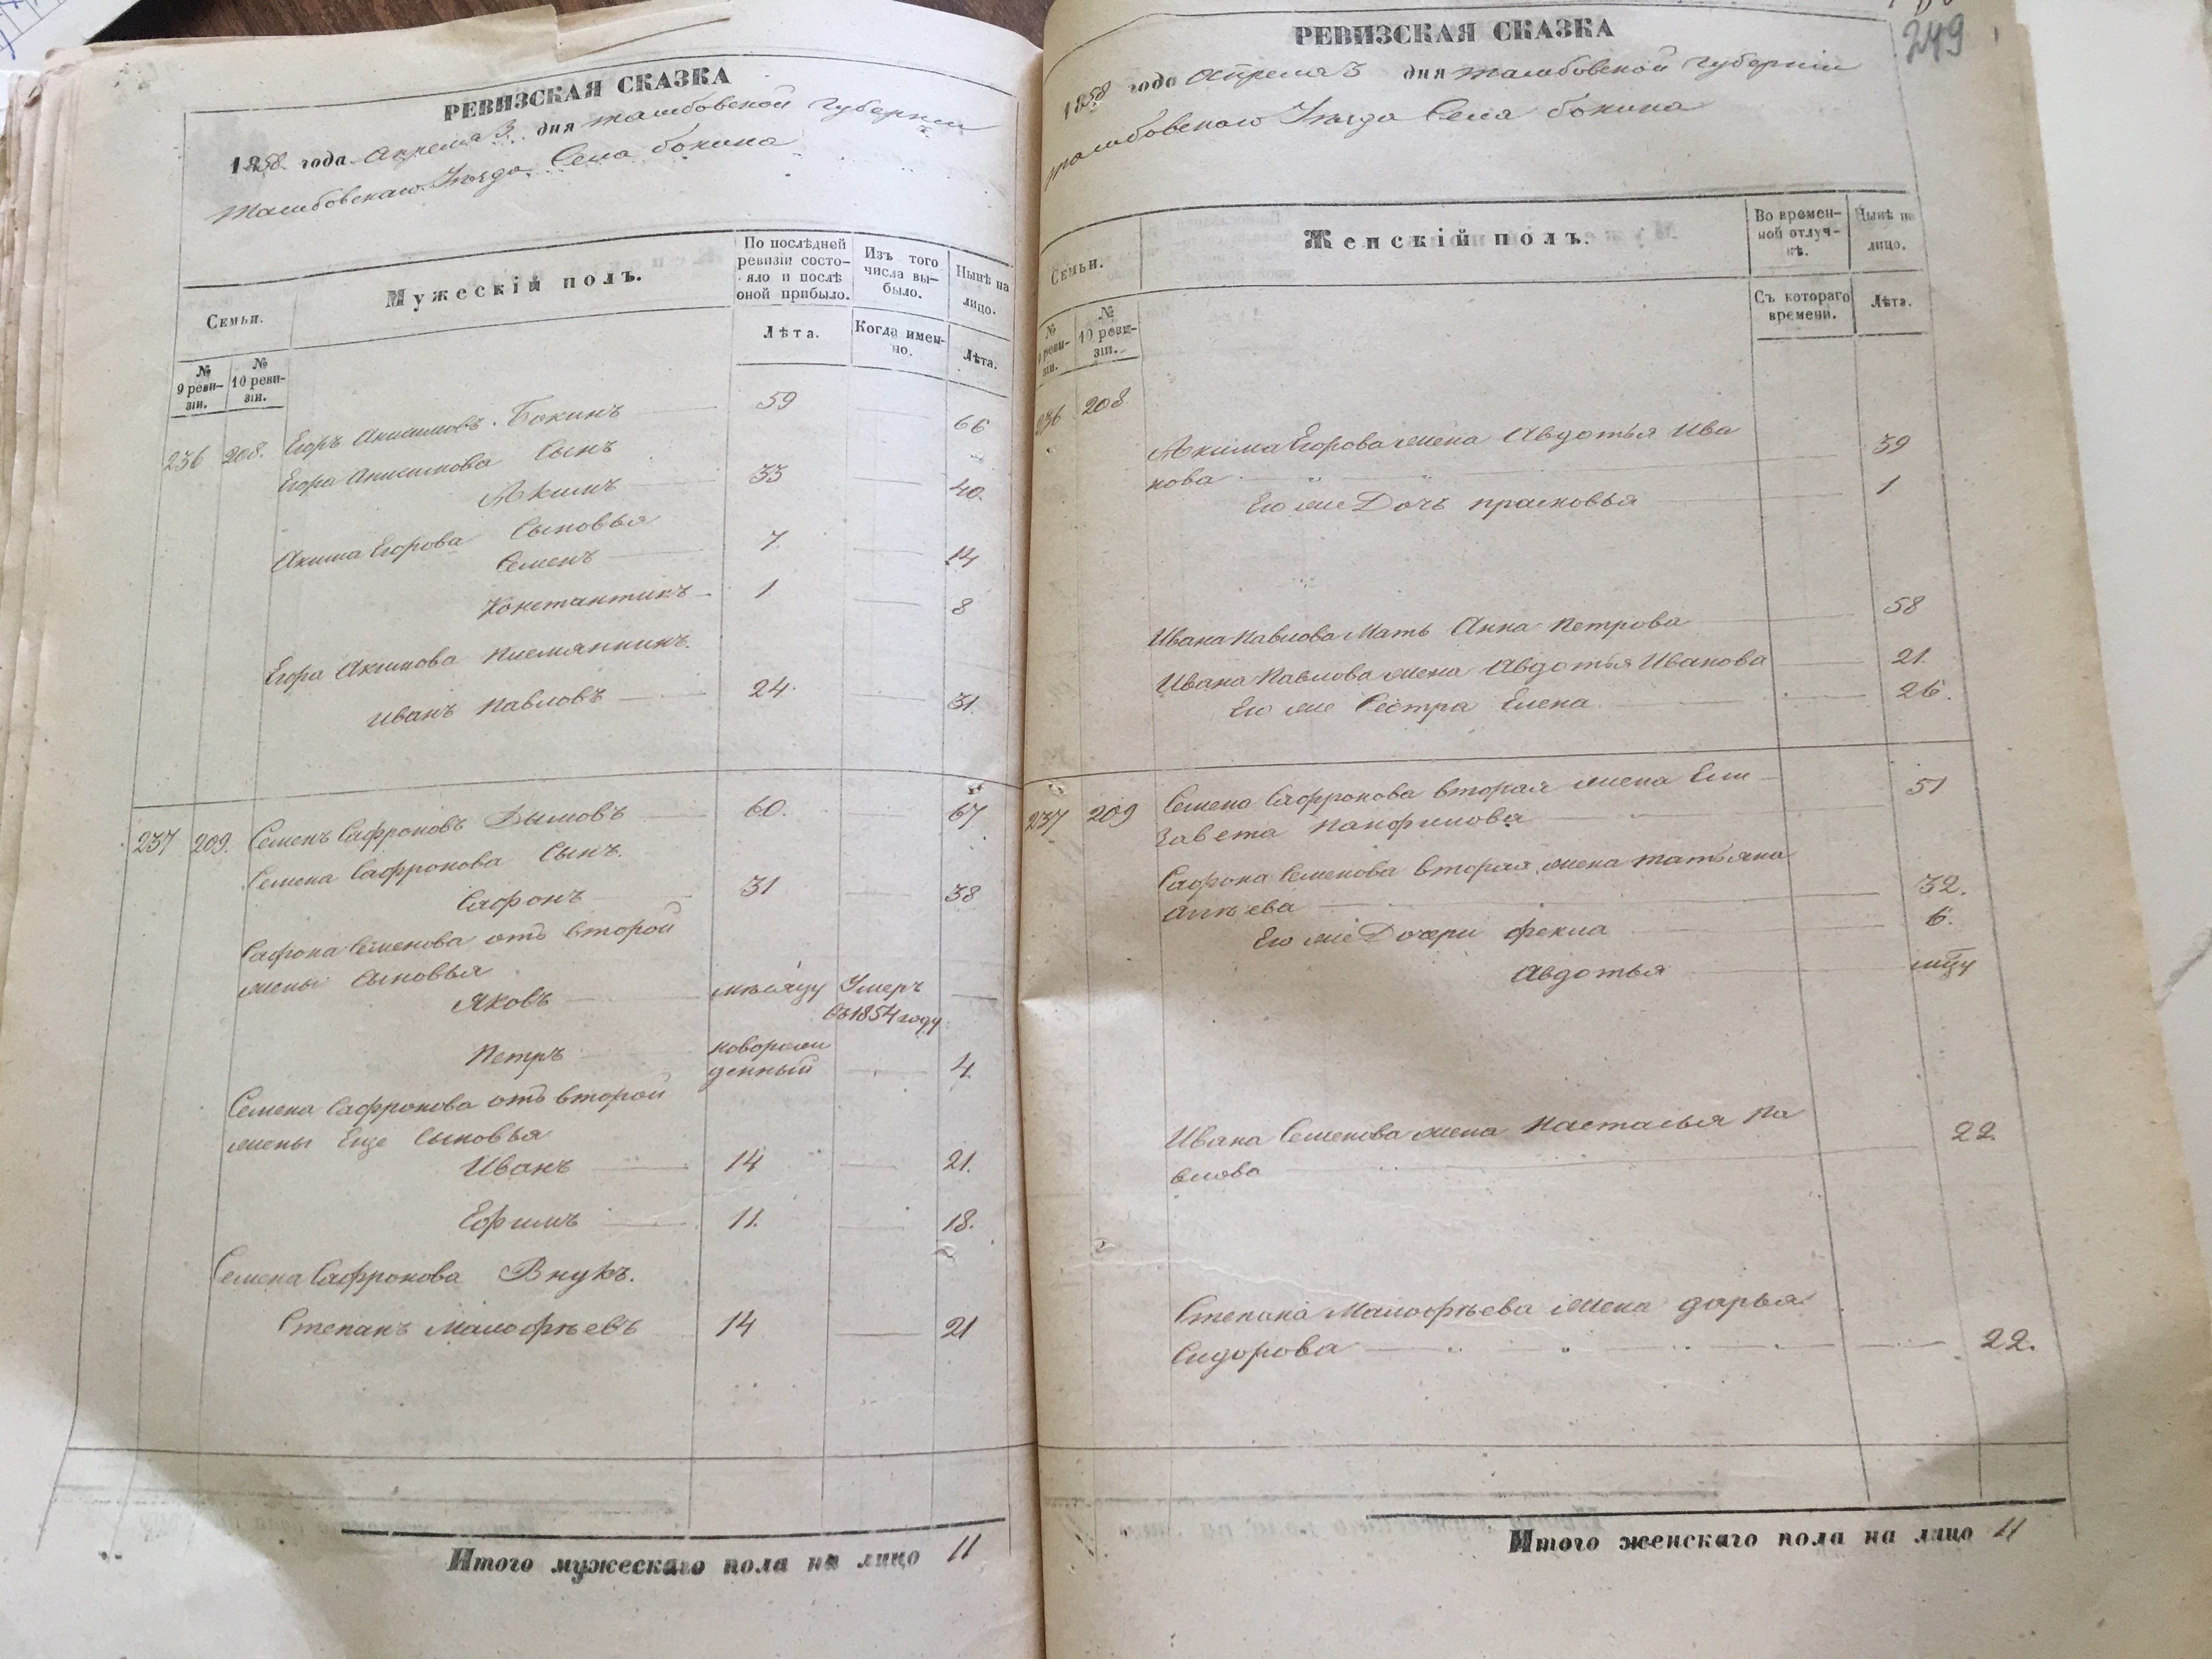 РЕВИЗСКАЯ СКАЗКА
1858 года Апреля 3 дня тамбовской губернии
Тамбовскаго Уезда Села бокина
Семьи.
Мужескій полъ.
По послѣдней ревизіи состо-
яло и послѣ
оной прибыло.
Изъ того
числа вы-
было.
Нынѣ на
лицо.
Лѣта.
Когда имен-
но.
Лѣта.
№
9 реви-
зіи.
№
10 реви-
зіи.
236 208. Егоръ Анисимовъ Бокинъ 59 66
Егора Анисимова Сынъ
Акимъ 33 40.
Акима Егорова Сыновья
Семенъ 7. 14
Константинъ 1 8
Егора Акимова племянникъ.
Иванъ Павловъ 24. 31.
237 209. Семенъ Сафроновъ Дымовъ 60. 67
Семена Сафронова Сынъ.
Сафронъ 31 38
Сафона Семенова отъ второй
жены Сыновья
Яковъ мѣсяцу Умеръ
въ 1854 году
Петръ новорож
денный 4.
Семена Сафронова отъ второй
жены Еще Сыновья
Иванъ 14 21.
Ефимъ 11. 18.
Семена Сафронова Внукъ.
Степанъ Малофѣевъ 14 21
Итого мужескаго пола на лицо 11
249
РЕВИЗСКАЯ СКАЗКА
1858 года Апреля 3 дня тамбовской губернии
тамбовскаго Уезда Села бокина
Семьи.
Женскій полъ.
Во времен-
ной отлуч-
кѣ.
Нынѣ на
лицо.
Съ котораго
времени.
Лѣта.
№
9 реви-
зіи.
№
10 реви-
зіи.
236 208.
Акима Егорова жена Авдотья Ива
нова 39
Его же Дочь прасковья 1.
Ивана Павлова Мать Анна петрова 58
Ивана Павлова жена Авдотья Иванова 21.
Его же Сестра Елена 26.
237 209 Семена Сафронова вторая жена Ели-
завета панфилова 51
Сафрона Семенова вторая жена татьяна
32.
Его же Дочери фекла 6.
Авдотья мцу
Ивана Семенова жена Насталья Па
влова 22.
Степана Малофѣева жена дарья
Сидорова 22.
Итого женскаго пола на лицо 11